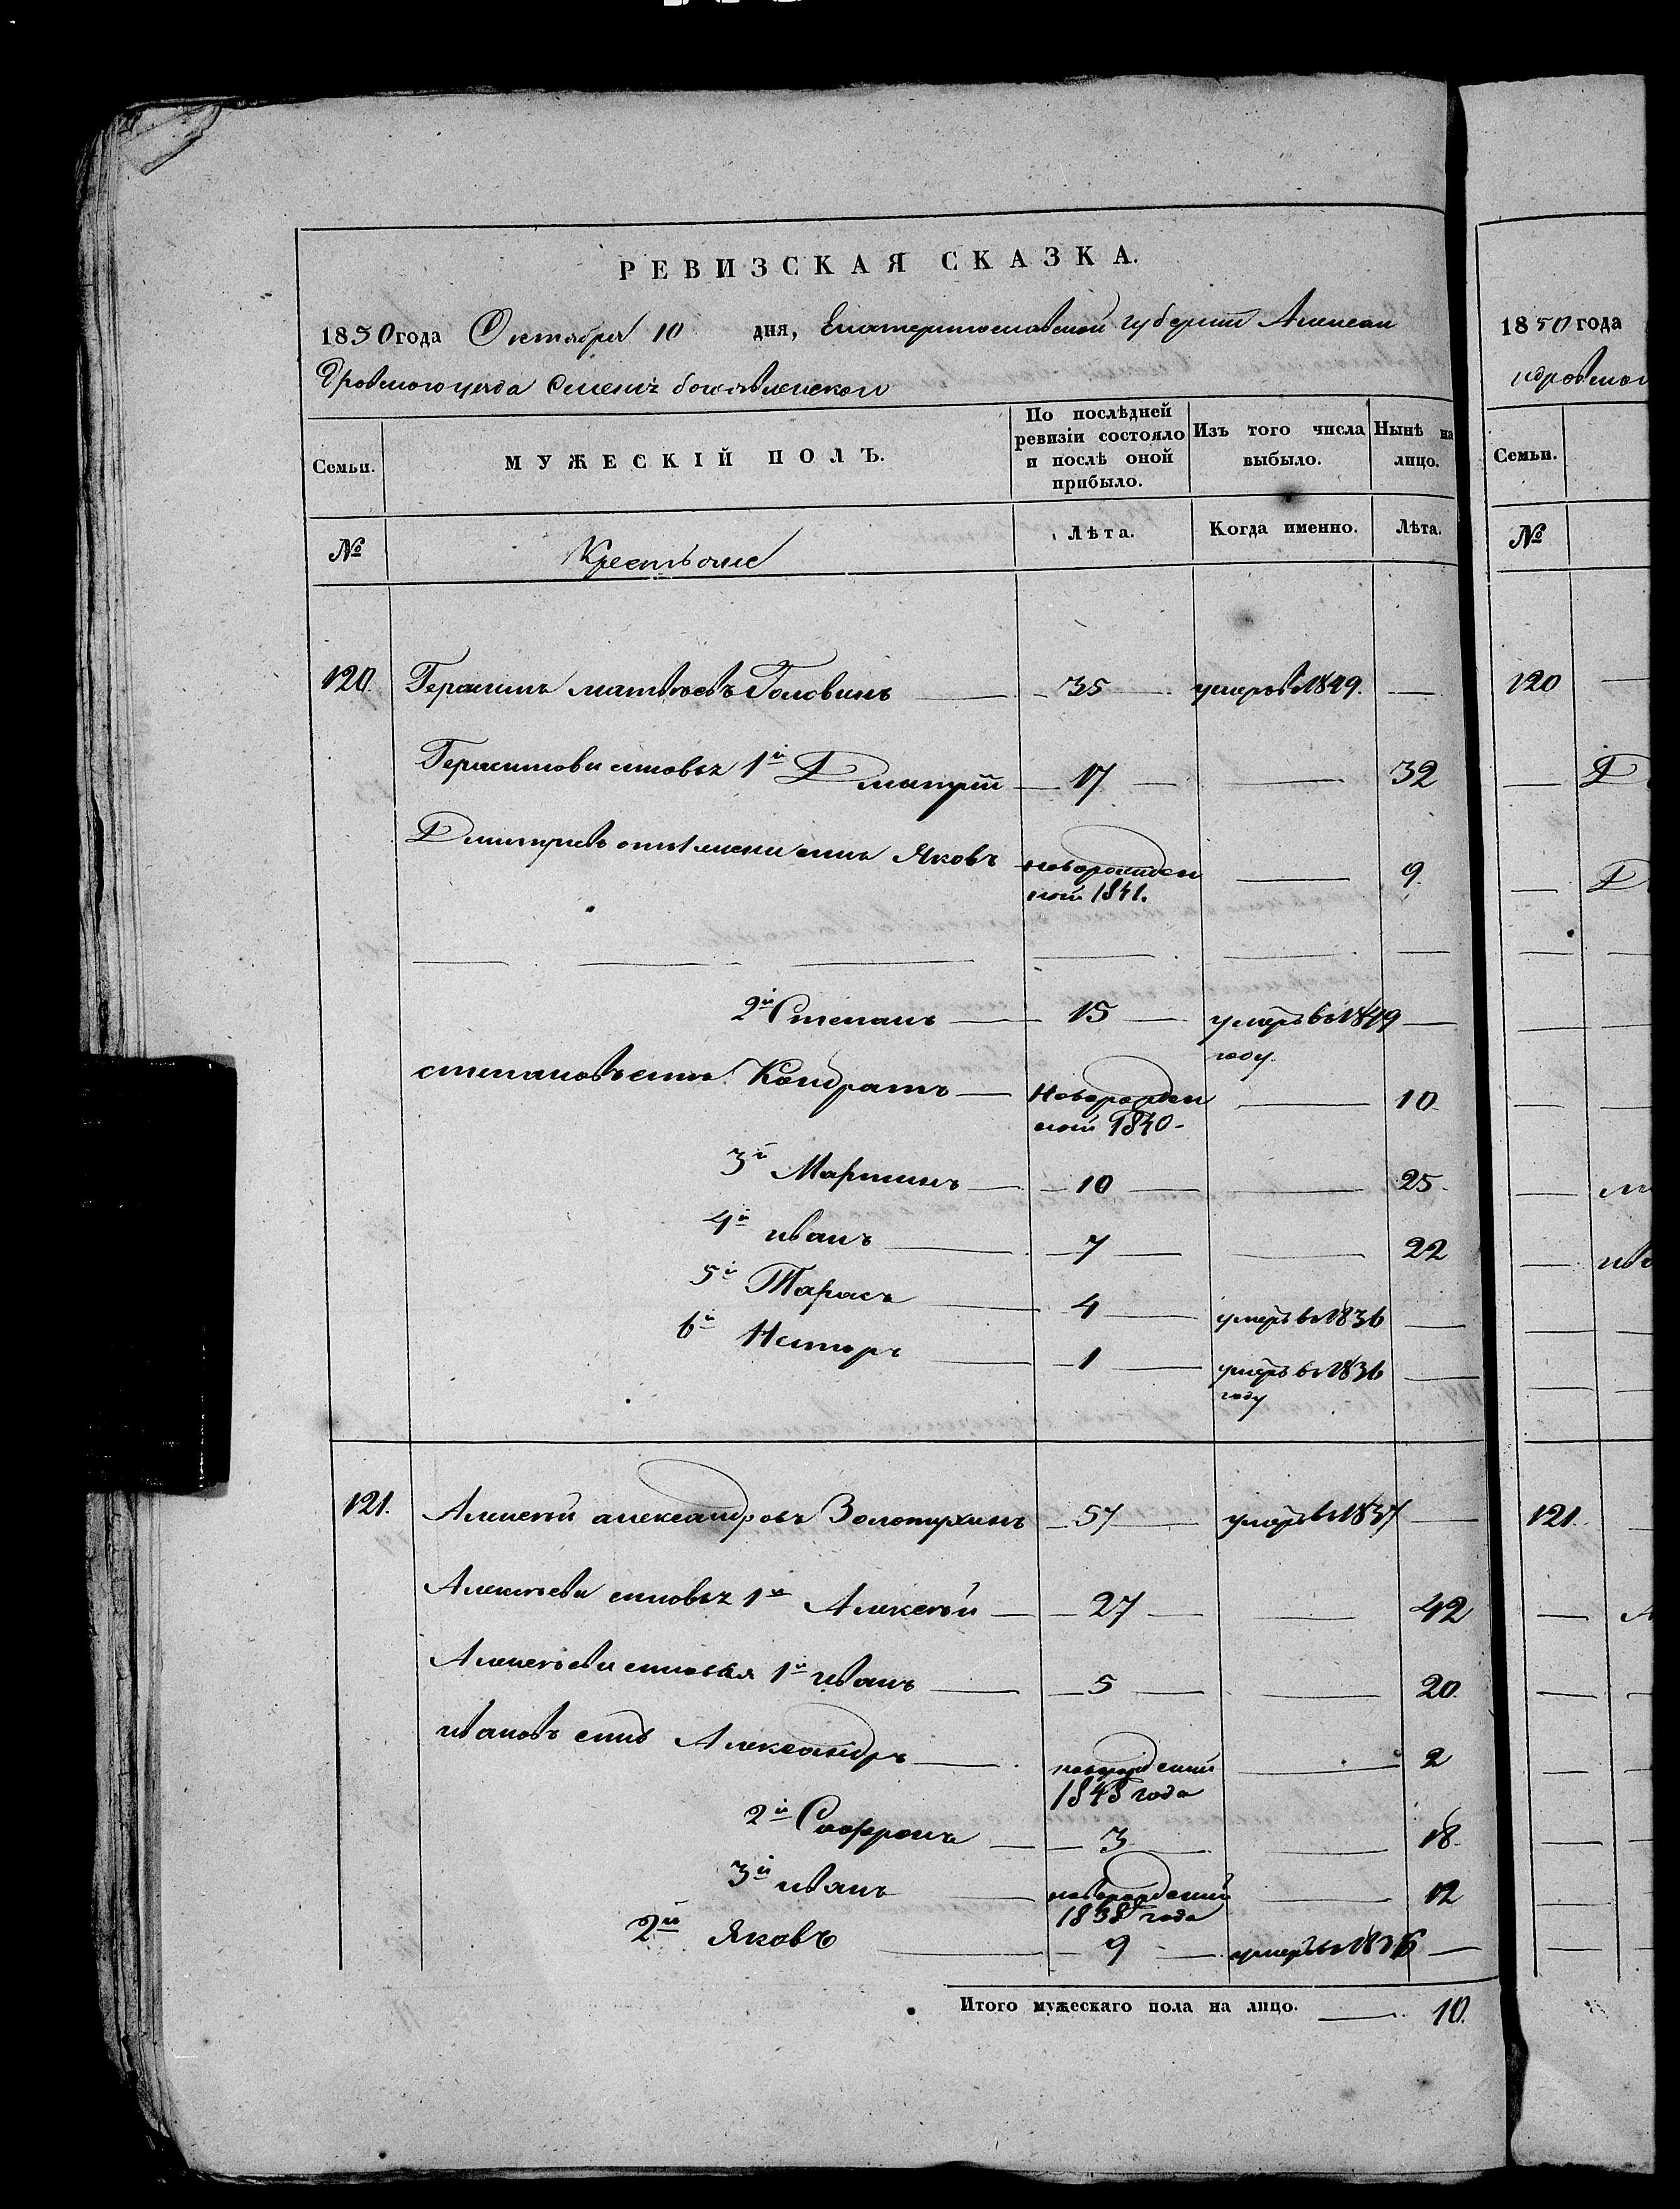 РЕВИЗСКАЯ СКАЗКА.
1850 года Октября 10 дня, Екатеринославской губернии Александ
дровского уезда
Семьи. МУЖЕСКІЙ ПОЛЪ. По послѣдней ревизіи состояло и послѣ оной прибыло. Изъ того числа выбыло. Нынѣ на лицо.
№ Крестьяне Лѣта. Когда именно. Лѣта.
120. Герасимъ матвѣевъ Головинъ 35 умеръ в 1849.
Герасимовы сыновья 1й Дмитрій 17 32
Дмитріевъ сынъ Яковъ новорожден 9
ной 1841.
2й Степанъ 15 умеръ въ 1849
году.
степановъ сынъ Кондратъ Новорожден 10
ной 1840
3й Мартинъ 10 25
4й иванъ 7 22
5й Тарасъ 4 умеръ въ 1836
6й Несторъ 1 умеръ въ 1836
году
121. Алексѣй александровъ Золотухинъ 57 умеръ в 1837
Алексѣевы сыновья 1й Алексѣй 27 42
Алексѣевы сыновья 1й иванъ 5 20
ивановъ сынъ Александръ новорожденный 2
1848 года
2й Софронъ 3 18
3й иванъ новорожденный 12
1838 года
2й Яковъ 9 умеръ в 1836
Итого мужескаго пола на лицо. 10.
1850 года
ндровског
Семьи.
№
120
Д
Д
ма
ива
121.
А